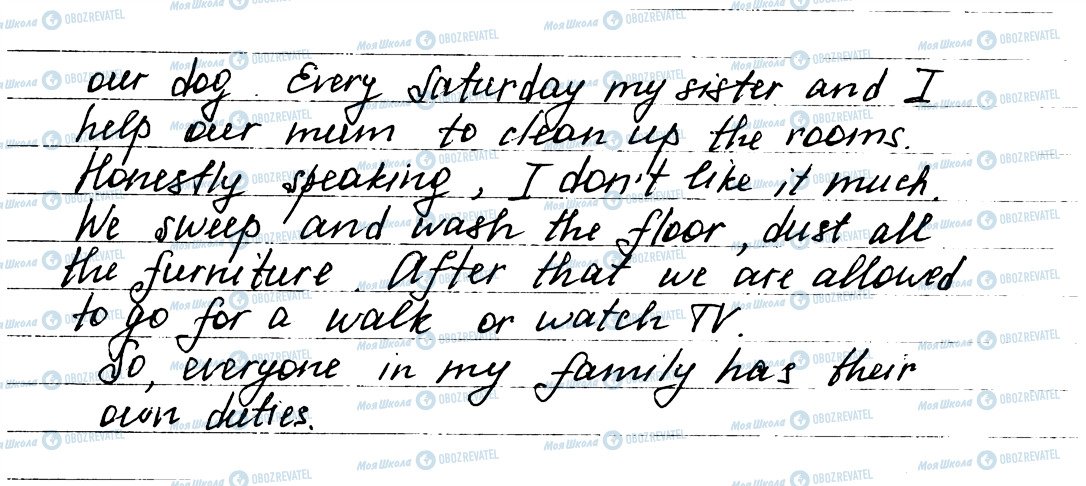 our dog. Every Saturday my sister and I
help our mum to clean up the rooms.
Honestly speaking, I don't like it much.
We sweep and wash the floor, dust all
the furniture. After that we are allowed
to go for a walk or watch TV.
So, everyone in my family has their
own duties.
Моя Школа OBOZREVATEL